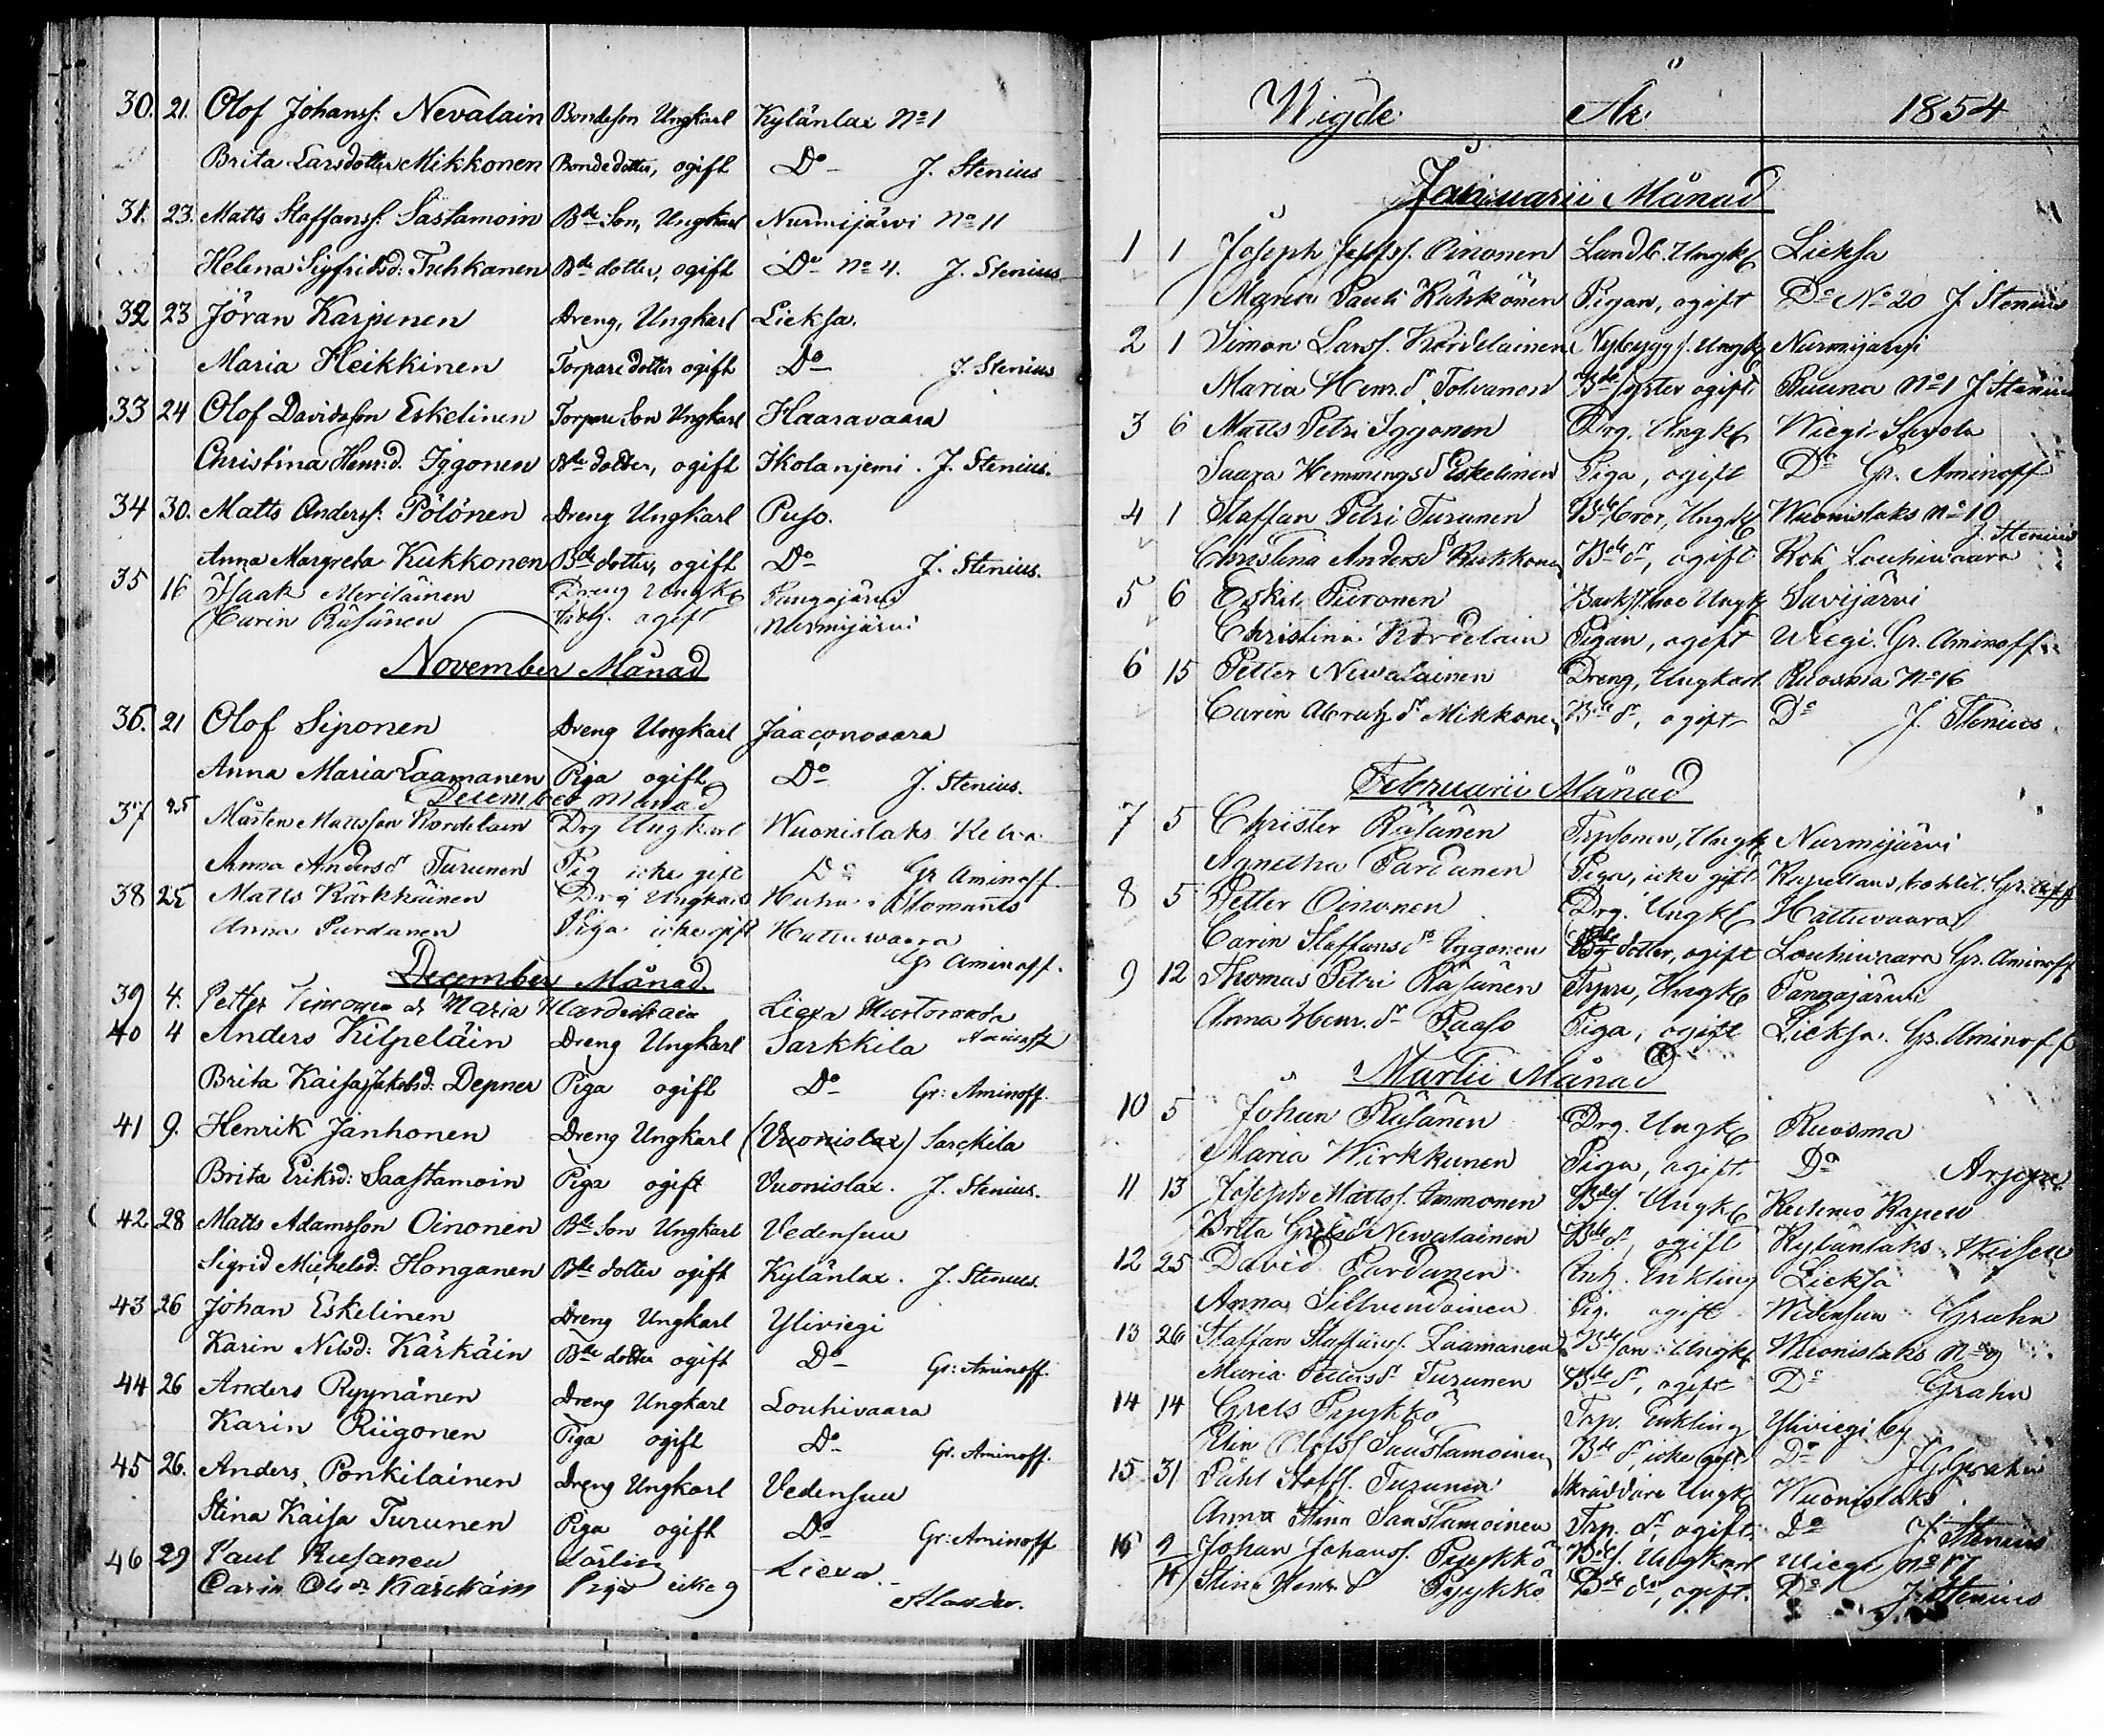 30. 21. Olof Johanss: Nevalain Bondeson Ungkarl Kylänlax No 1
Brita Larsdotter Mikkonen Bondedotter, ogift Do J. Stenius
31. 23. Matts Staffanss: Sastamoin Bde Son, Ungkarl Nurmijärvi No 11
Helena Sigfridsd: Tuhkanen Bde dotter, ogift Do No 4. J. Stenius
32 23 Jöran Karpinen Dreng, Ungkarl Lieksa.
Maria Heikkinen Torparedotter ogift Do J. Stenius
33 24 Olof Davidsson Eskelinen Torpare Son Ungkarl Haaravaara
Christina Henr:d. Iggonen Bde dotter, ogift Ikolanjemi. J. Stenius.
34 30. Matts Anderss: Pölönen Dreng Ungkarl Puso.
Anna Margreta Kukkonen Bde dotter, ogift Do J. Stenius.
35 16 Isaak Meriläinen Dreng Ungk Pangajärvi
Carin Räsänen ogift Nurmijärvi
November Månad
36. 21 Olof Siponen Dreng Ungkarl Jaaconvaara
Anna Maria Laamanen Piga ogift Do J. Stenius.
December Månad
37 25 Mårten Mattsson Kordelain Drg Ungkarl Wuonislaks Kelva
Anna Andersdr Turunen Pig icke gift Do Gr Aminoff
38 25 Matts Kärkkäinen Drg Ungkarl Huhu Ilomants
Anna Pardanen Piga icke gift Hattuwaara
Gr Aminoff.
December Månad.
39 4. Petter Timonen & Maria Liexa
40 4 Anders Kilpeläin Dreng Ungkarl Sarkkila Aminoff
Brita Kaisa Jakobsd: Depner Piga ogift Do Gr: Aminoff.
41 9. Henrik Janhonen Dreng Ungkarl (Vuonislax) Sarckila
Brita Eriksd: Saastamoin Piga ogift Vuonislax. J. Stenius.
42 28 Matts Adamsson Oinonen Bde Son Ungkarl Vedensuu
Sigrid Michelsd: Honganen Bde dotter ogift Kylänlax. J. Stenius.
43 26 Johan Eskelinen Dreng Ungkarl Yliviegi
Karin Nilsd: Kärkäin Bde dotter ogift Do Gr: Aminoff.
44 26 Anders Ryynänen Dreng Ungkarl Louhivaara
Karin Riigonen Piga ogift Do Gr: Aminoff.
45 26. Anders Ponkilainen Dreng Ungkarl Vedensuu
Stina Kaisa Turunen Piga ogift Do Gr: Aminoff
46 29 Paul Rusanen Liexa
Carin Olsdr Kärckäin Piga icke g
Wigde År 1854
Januarii Månad
1 1 Joseph Josefss. Oinonen Landb. Ungk Lieksa
Maria Pauli Kähkönen Pigan, ogift Do No 20 J Stenius
2 1 Simon Larss. Kordelainen Nybygg s. Ungk Nurmijärvi
Maria Henr. dr Tolvanen Bde syster ogift Ruuna No 1 J Stenius
3 6 Matts Petri Iggonen Drg. Ungk Wiegi Savola
Saaga Hemmings dr Eskelinen Piga, ogift Do Gr. Aminoff
4 1 Staffan Petri Turunen Bde bror, Ungk Wuonislaks No 10
J. Stenius
Christina Anders dr Kukkonen Bde dr, ogift Kob Louhiwaara
5 6 Eskil Piironen Ungk Savijärvi
Christina Kordelain Pigan, ogift Wiegi. Gr. Aminoff.
6 15 Petter Newalainen Dreng, Ungkarl Ruosma No 16
Carin Abrah. dr Mikkonen Bde dr, ogift Do J. Stenius
Februarii Månad
7 5 Christer Räsänen Trpsonen, Ungk Nurmijärvi
Agnetha Pardanen Piga, icke gift Kapellans Gr.
8 5 Petter Oinonen Drg. Ungk Hattuvaara
Carin Staffans dr Iggonen Bde dotter, ogift Louhiwaara Gr. Aminoff
9 12 Thomas Petri Räsänen Trpre, Ungk Pangajärwi
Anna Henr. dr Paaso Piga, ogift Lieksa. Gr. Aminoff
Martii Månad
10 5 Johan Räsänen Drg. Ungk Ruosma
Maria Wirkkunen Piga, ogift Do
11 13 Joseph Mattss. Immonen Bdes. Ungk
Brita Grels dr Newalainen Bde dr, ogift Kylänlaks
12 25 David Pardanen Enkling Lieksa
Anna Pig. ogift Wedensuu Grahn
13 26 Staffan Staffans. Laamanen Bde son Ungk Wuonislaks No 9
Maria Petters dr Turunen Bde dr, ogift Do Grahn
14 14 Grels Pyykkö Trp. Enkling Yliviegi by
Elin Olofs Saastamoinen Bde dr, icke gift Do J G Grahn
15 31 Påhl Staffs. Turunen Skräddare Ungk Wuonislaks
Anna Stina Saastamoinen Trp. dr, ogift Do J. Stenius
16 9/4 Johan Johanss. Pyykkö Bdes. Ungkarl Wiegi No 17
Stina Henr. d Pyykkö Bde dr, ogift. Do J. Stenius